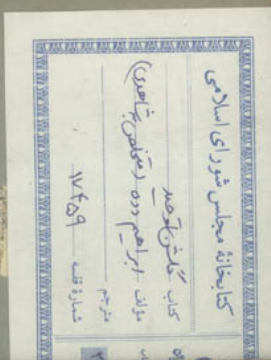 کتابخانهٔ مجلس شورای اسلامی
کتاب گلشن توحید
مؤلف ابراهیم دده (متخلص به شاهدی)
مترجم
شمارهٔ قفسه ۱۷۴۵۹